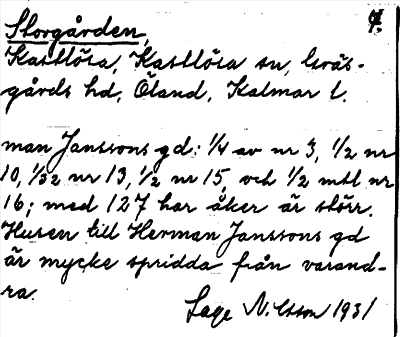 Storgården 4.
Kastlösa, Kastlösa sn, Gräs-
gårds hd, Öland, Kalmar l.
man Janssons gd: 1/4 av nr 3, 1/2 nr
10, 1/32 nr 13, 1/2 nr 15, och 1/2 mtl nr
16; med 127 har åker är störr.
Husen till Herman Janssons gd
är mycke spridda från varand-
ra.
Sage Nilsson 1931